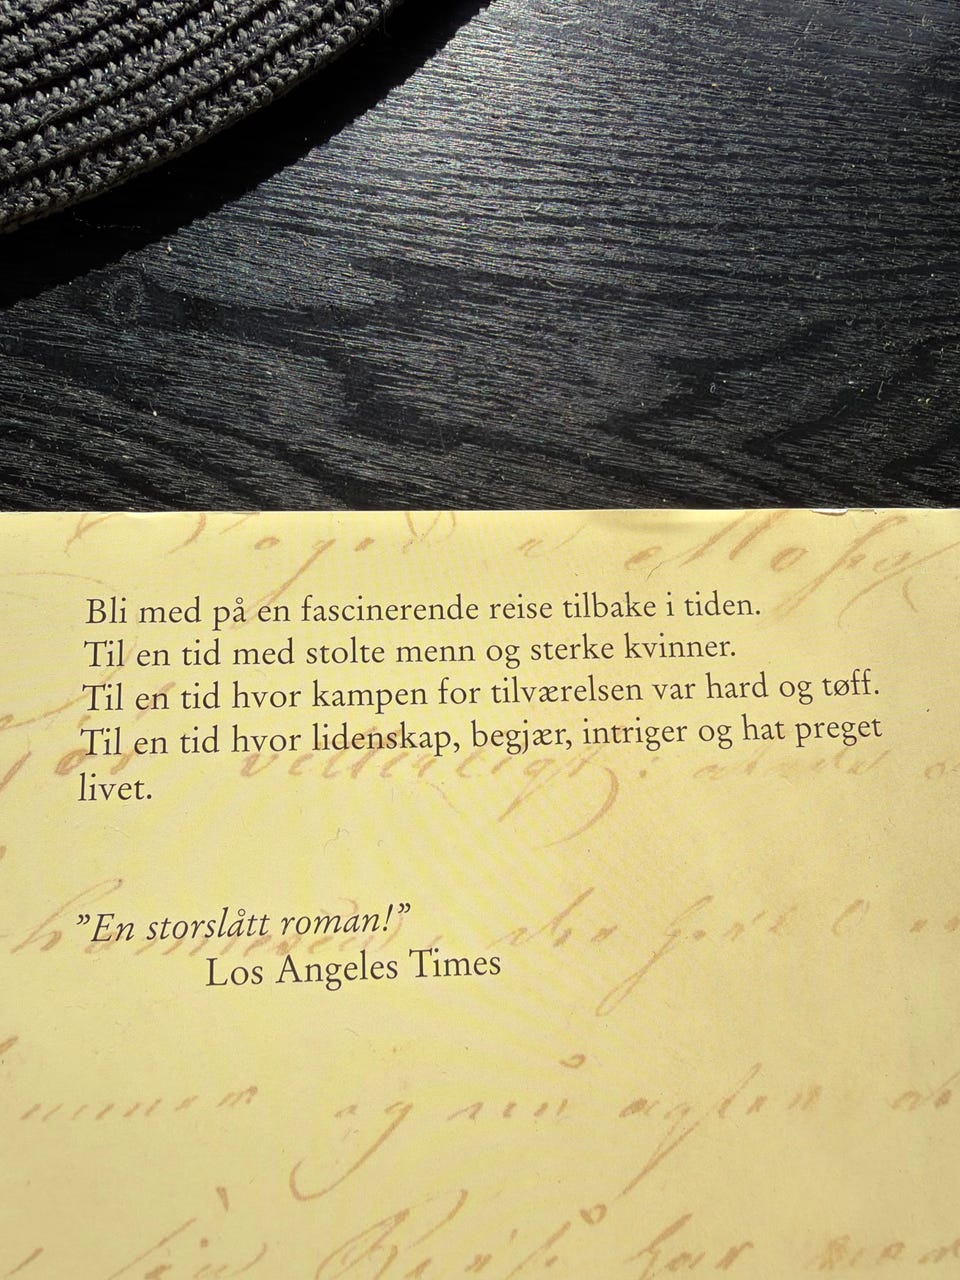 Bli med på en fascinerende reise tilbake i tiden.
Til en tid med stolte menn og sterke kvinner.
Til en tid hvor kampen for tilværelsen var hard og tøff.
Til en tid hvor lidenskap, begjær, intriger og hat preget
livet.
”En storslått roman!”
Los Angeles Times